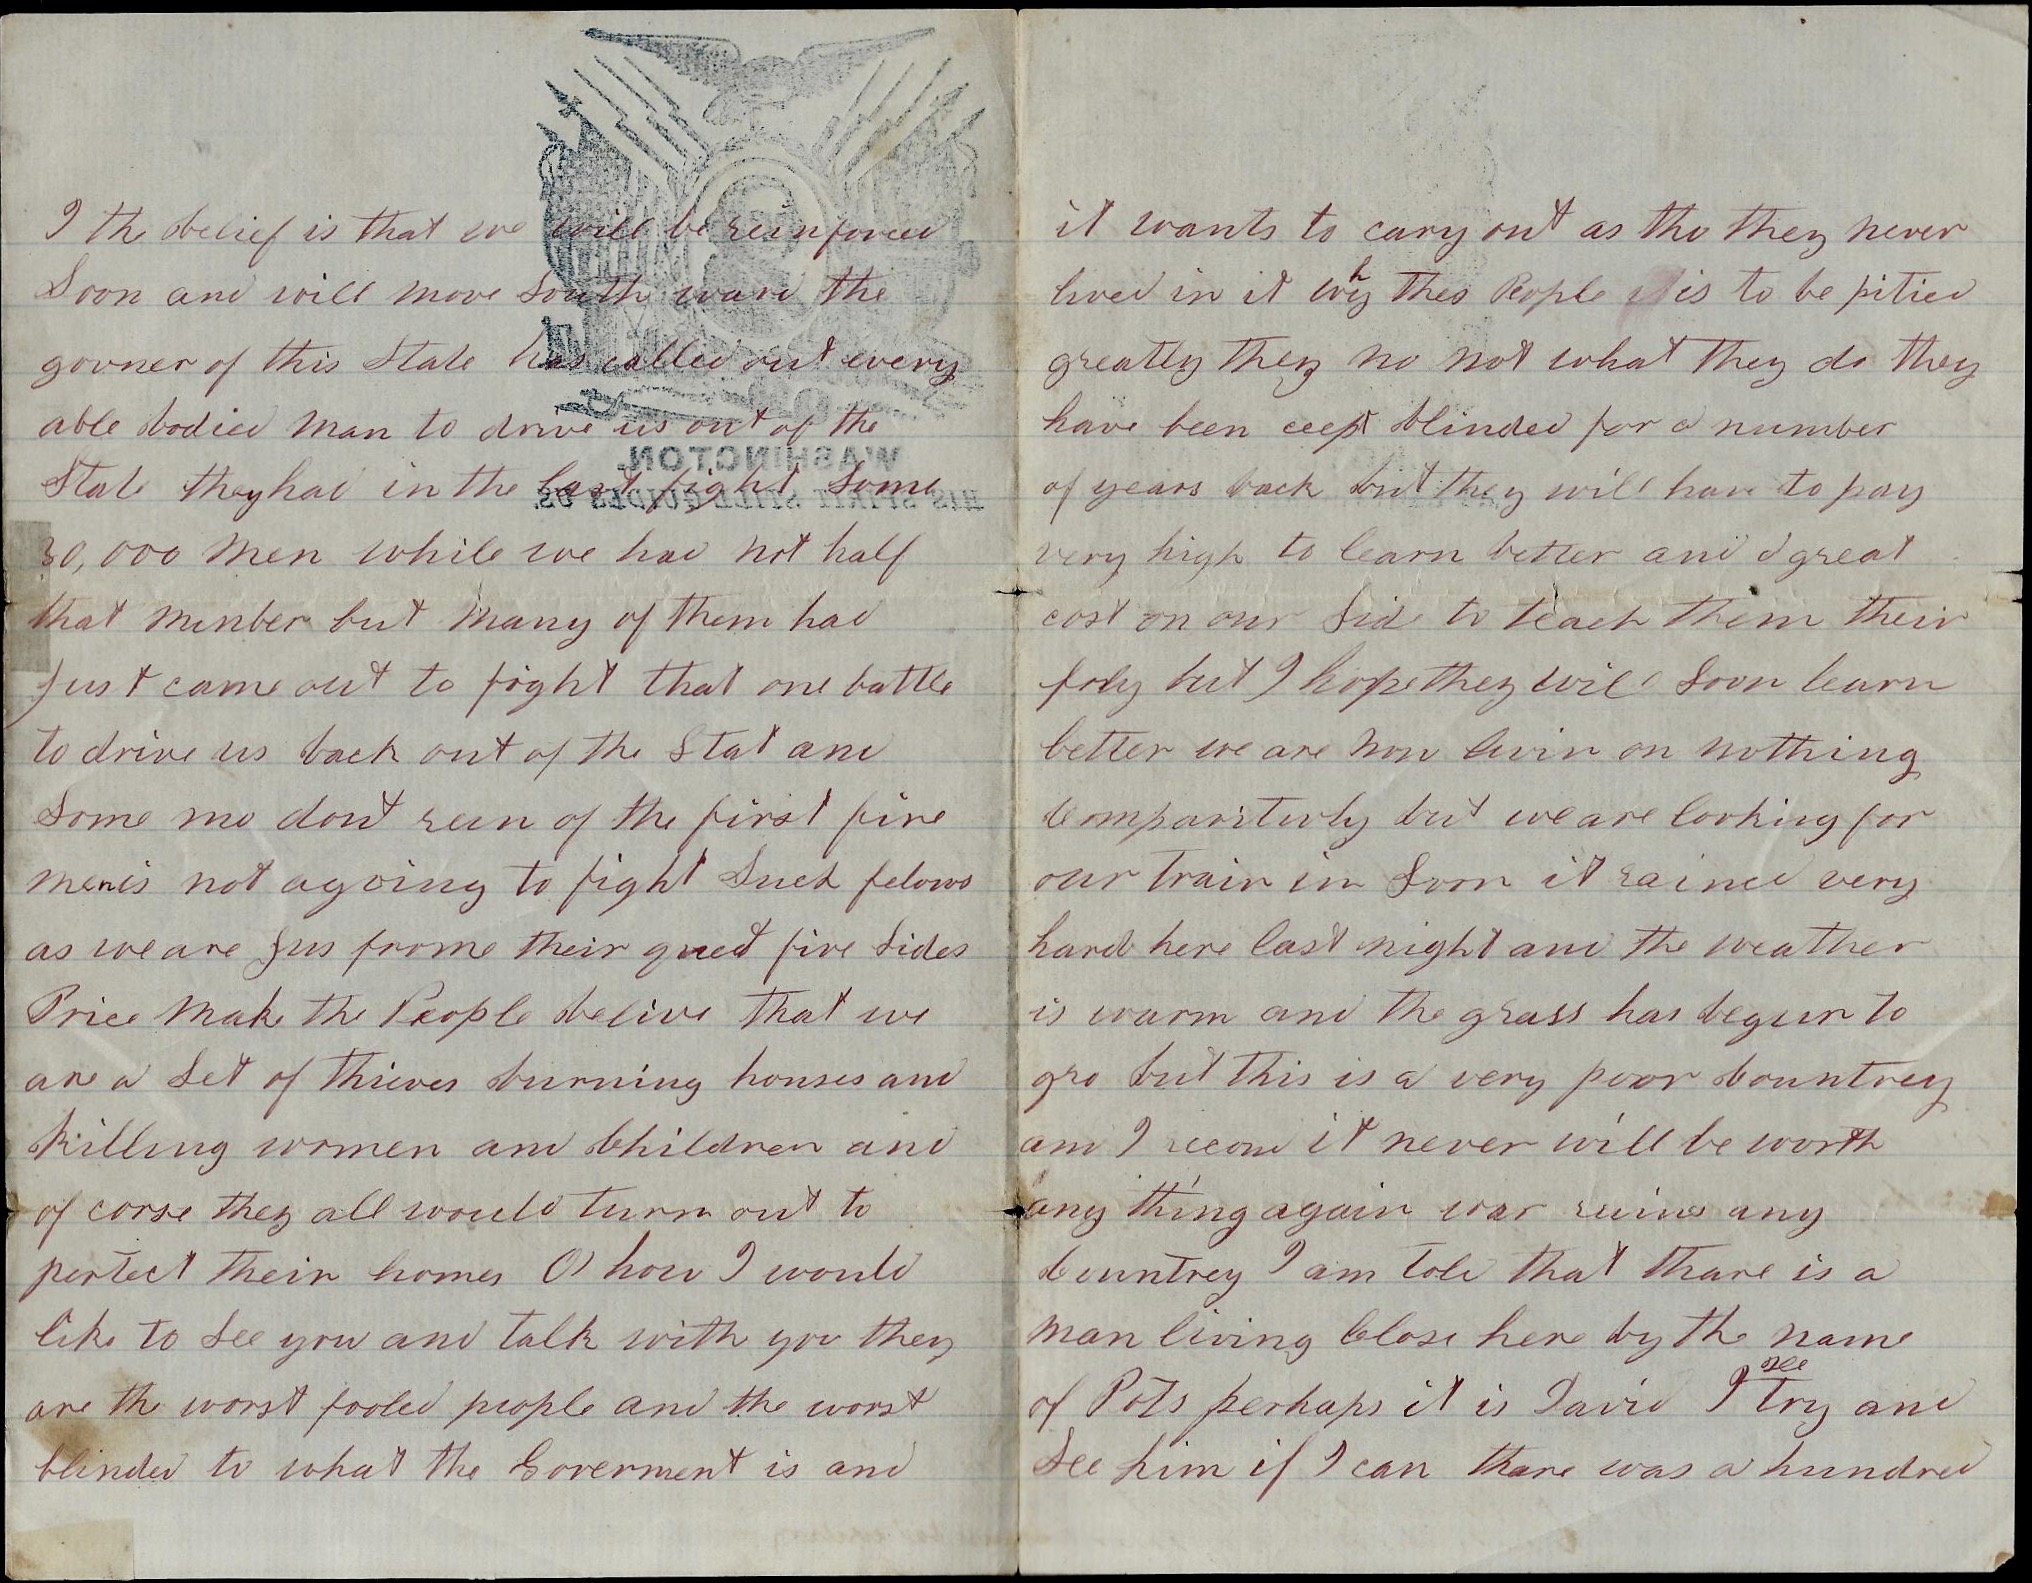 I the belief is that we will be reinforced
Soon and will move South ward the
govner of this State has called out every
able bodied man to drive us out of the
State they had in the last fight Some
30,000 men while we had not half
that munber but many of them had
Just came out to fight that one battle
to drive us back out of the Stat and
Some mo dont reun of the first fire
men is not agoing to fight Such felows
as we are Jus frome their quiet fire Sides
Price Make the People belive that we
are a Set of thieves burning houses and
killing women and Children and
of corse they all would turn out to
pertect their homes O how I would
like to See you and talk with you they
are the worst fooled people and the worst
blinded to what the Goverment is and
WASHINGTON.
HIS SPIRIT STILL GUIDES US.
it wants to cary out as tho they never
lived in it why thes People is to be pitied
greatly they no not what they do they
have been cept blinded for a number
of years back but they will have to pay
very high to learn better and a great
cost on our Side to teach them their
foly but I hope they will Soon learn
better we are now livin on nothing
Comparitivly but we are looking for
our train in Soon it rained very
hard here last night and the weather
is warm and the grass has begun to
gro but this is a very poor Countrey
and I recond it never will be worth
any thing again war ruins any
Countrey I am told that thare is a
man living Close here by the name
of Pots perhaps it is David I see try and
See him if I can thare was a hundred